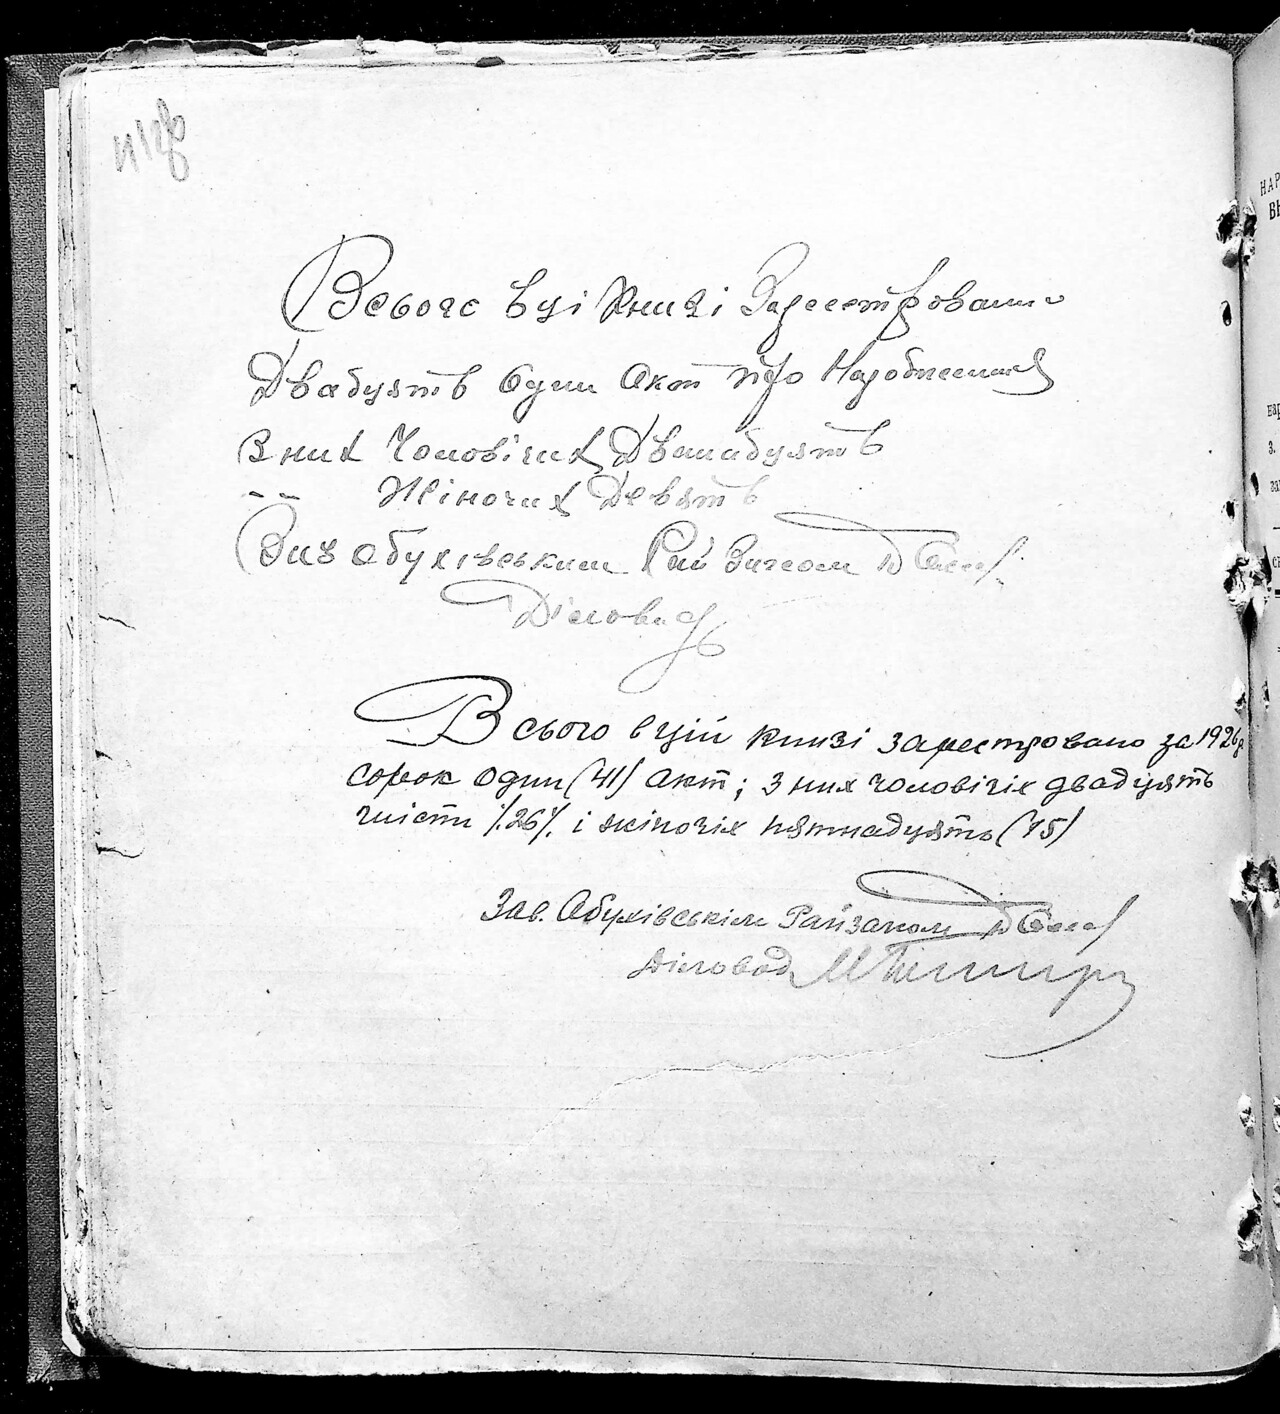 Всього в ці книзі Зареєстровано
Двадцять Один Акт про Народження
З них Чоловічих Дванадцять
-"- Жіночих Девять
Зав Обухівським Рай Загсом
Діловод
Всього в цій книзі зареєстровано за 1926 р.
сорок один (41) акт; з них чоловічіх двадцять
шість /.26/. і жіночіх пятнадцять (15)
Зав. Обухівським Райзагсом
Діловод
НАР
нар
з.